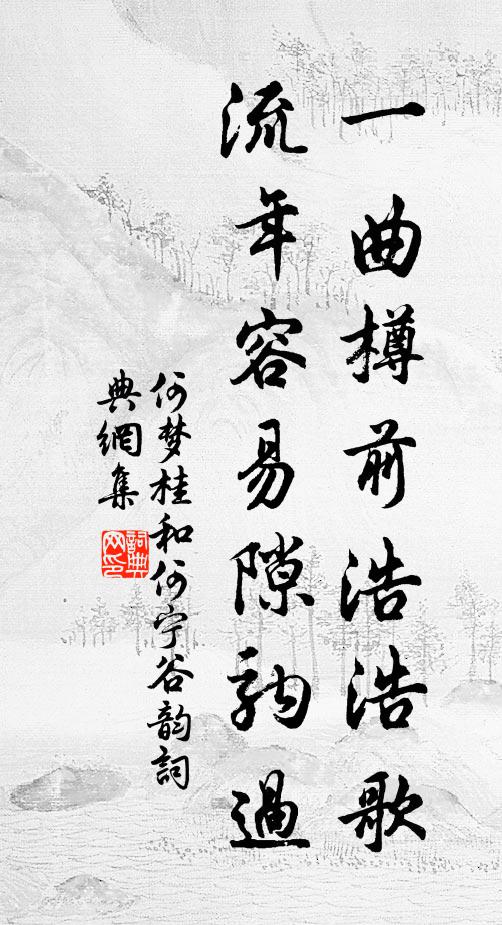 一曲樽前浩浩歌
流年容易隙駒過
何梦桂和何宁谷韵詞
典網集
詞典网印